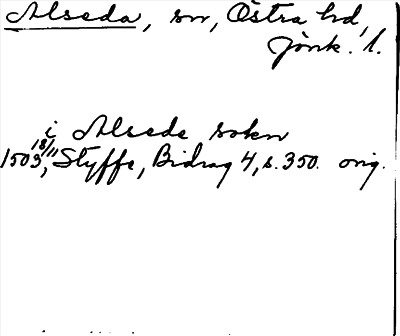 Alseda, sn, Östra hd,
Jönk. l.
i Alseda sokn
1503 18/11, Styffe, Bidrag 4, s. 350. orig.